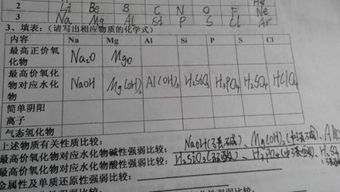 2 Li Be B C N O F Ne
3 Na Mg Al Si P S Cl Ar
3、填表:(请写出相应物质的化学式)
内容 Na Mg Al Si P S Cl
最高正价氧化物 Na₂O MgO
最高价氧化物对应水化物 NaOH Mg(OH)₂ Al(OH)₃ H₂SiO₃ H₃PO₄ H₂SO₄ HClO₄
简单阴阳离子
气态氢化物
上述物质有关性质比较:
最高价氧化物对应水化物碱性强弱比较: NaOH(强碱)、Mg(OH)₂
最高价氧化物对应水化物酸性强弱比较: H₂SiO₃ H₃PO₄
金属性及单质还原性强弱比较: